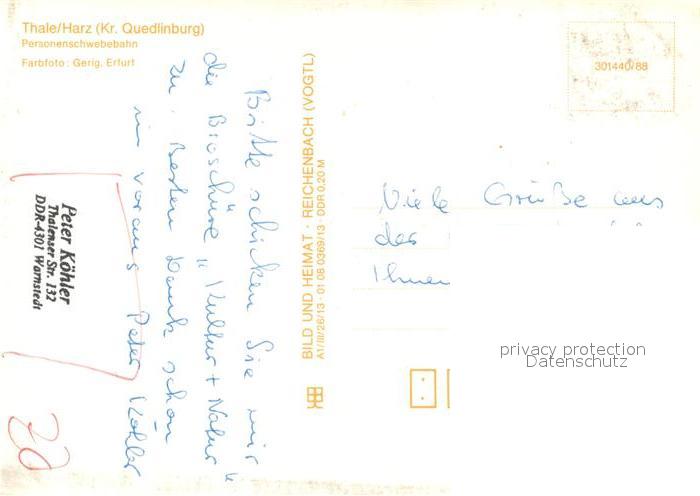 Thale/Harz (Kr. Quedlinburg)
Personenschwebebahn
Farbfoto: Gerig, Erfurt
Bitte schicken Sie mir
die Broschüre "Kultur + Natur"
zu. Besten Dank schon
im voraus Peter Köhler
Peter Köhler
Thalenser Str. 132
DDR-4301 Warnstedt
20
BILD UND HEIMAT · REICHENBACH (VOGTL)
A1/III/26/13 · 01 08 0369/13 DDR 0,20 M
301440/88
Viele Grüße aus
der
Ihnen
privacy protection
Datenschutz